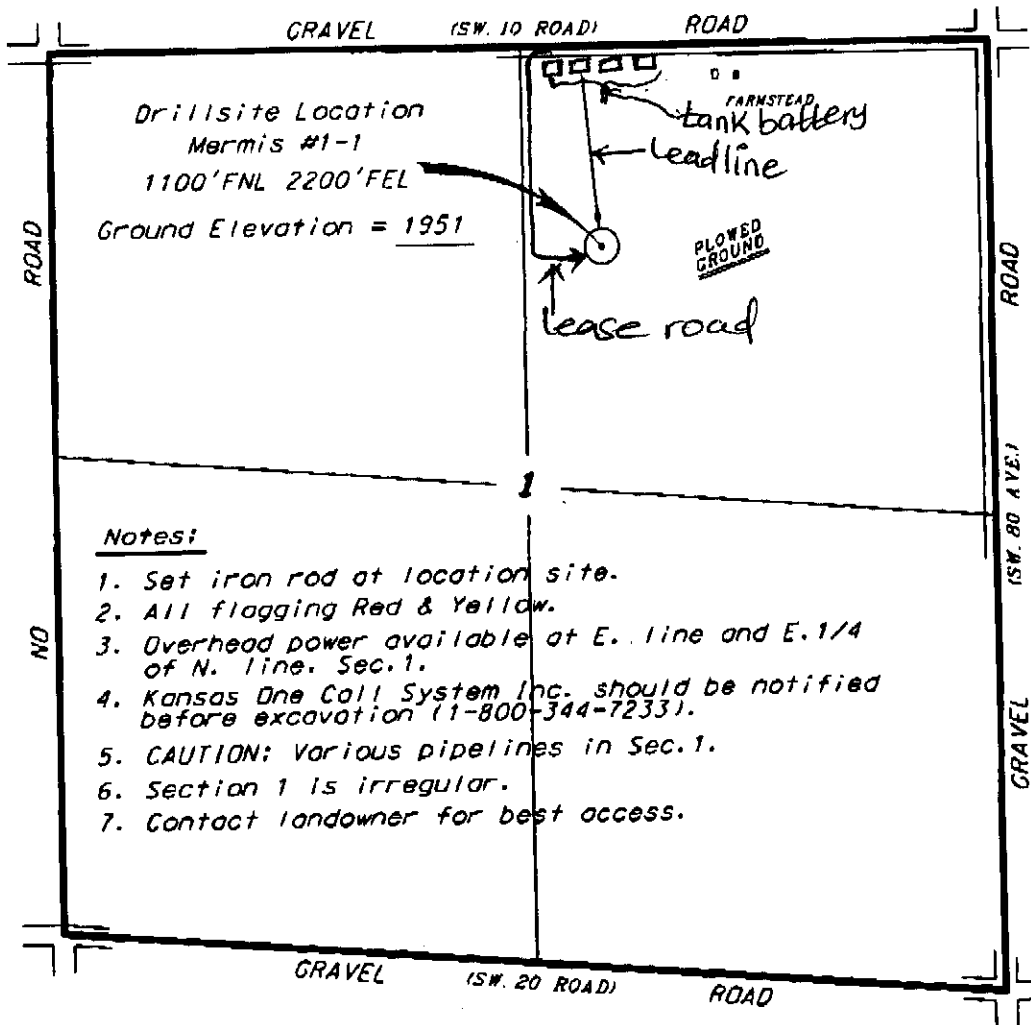 GRAVEL (SW. 10 ROAD) ROAD
Drillsite Location
Mermis #1-1
1100'FNL 2200'FEL
Ground Elevation = 1951
FARMSTEAD
tank battery
Leadline
PLOWED
GROUND
lease road
ROAD
ROAD
1
(SW. 80 AVE.)
Notes:
1. Set iron rod at location site.
2. All flagging Red & Yellow.
3. Overhead power available at E. line and E.1/4
of N. line. Sec.1.
4. Kansas One Call System Inc. should be notified
before excavation (1-800-344-7233).
5. CAUTION: Various pipelines in Sec.1.
6. Section 1 is irregular.
7. Contact landowner for best access.
NO
GRAVEL
GRAVEL (SW. 20 ROAD) ROAD